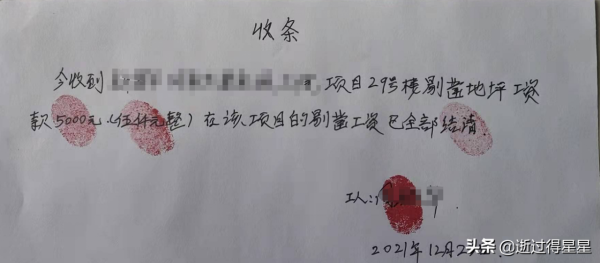 收条
今收到 项目29号楼剔凿地坪工资
款5000元(伍仟元整)在该项目的剔凿工资已全部结清
工人:
2021年12月2
头条 @浙过得星星